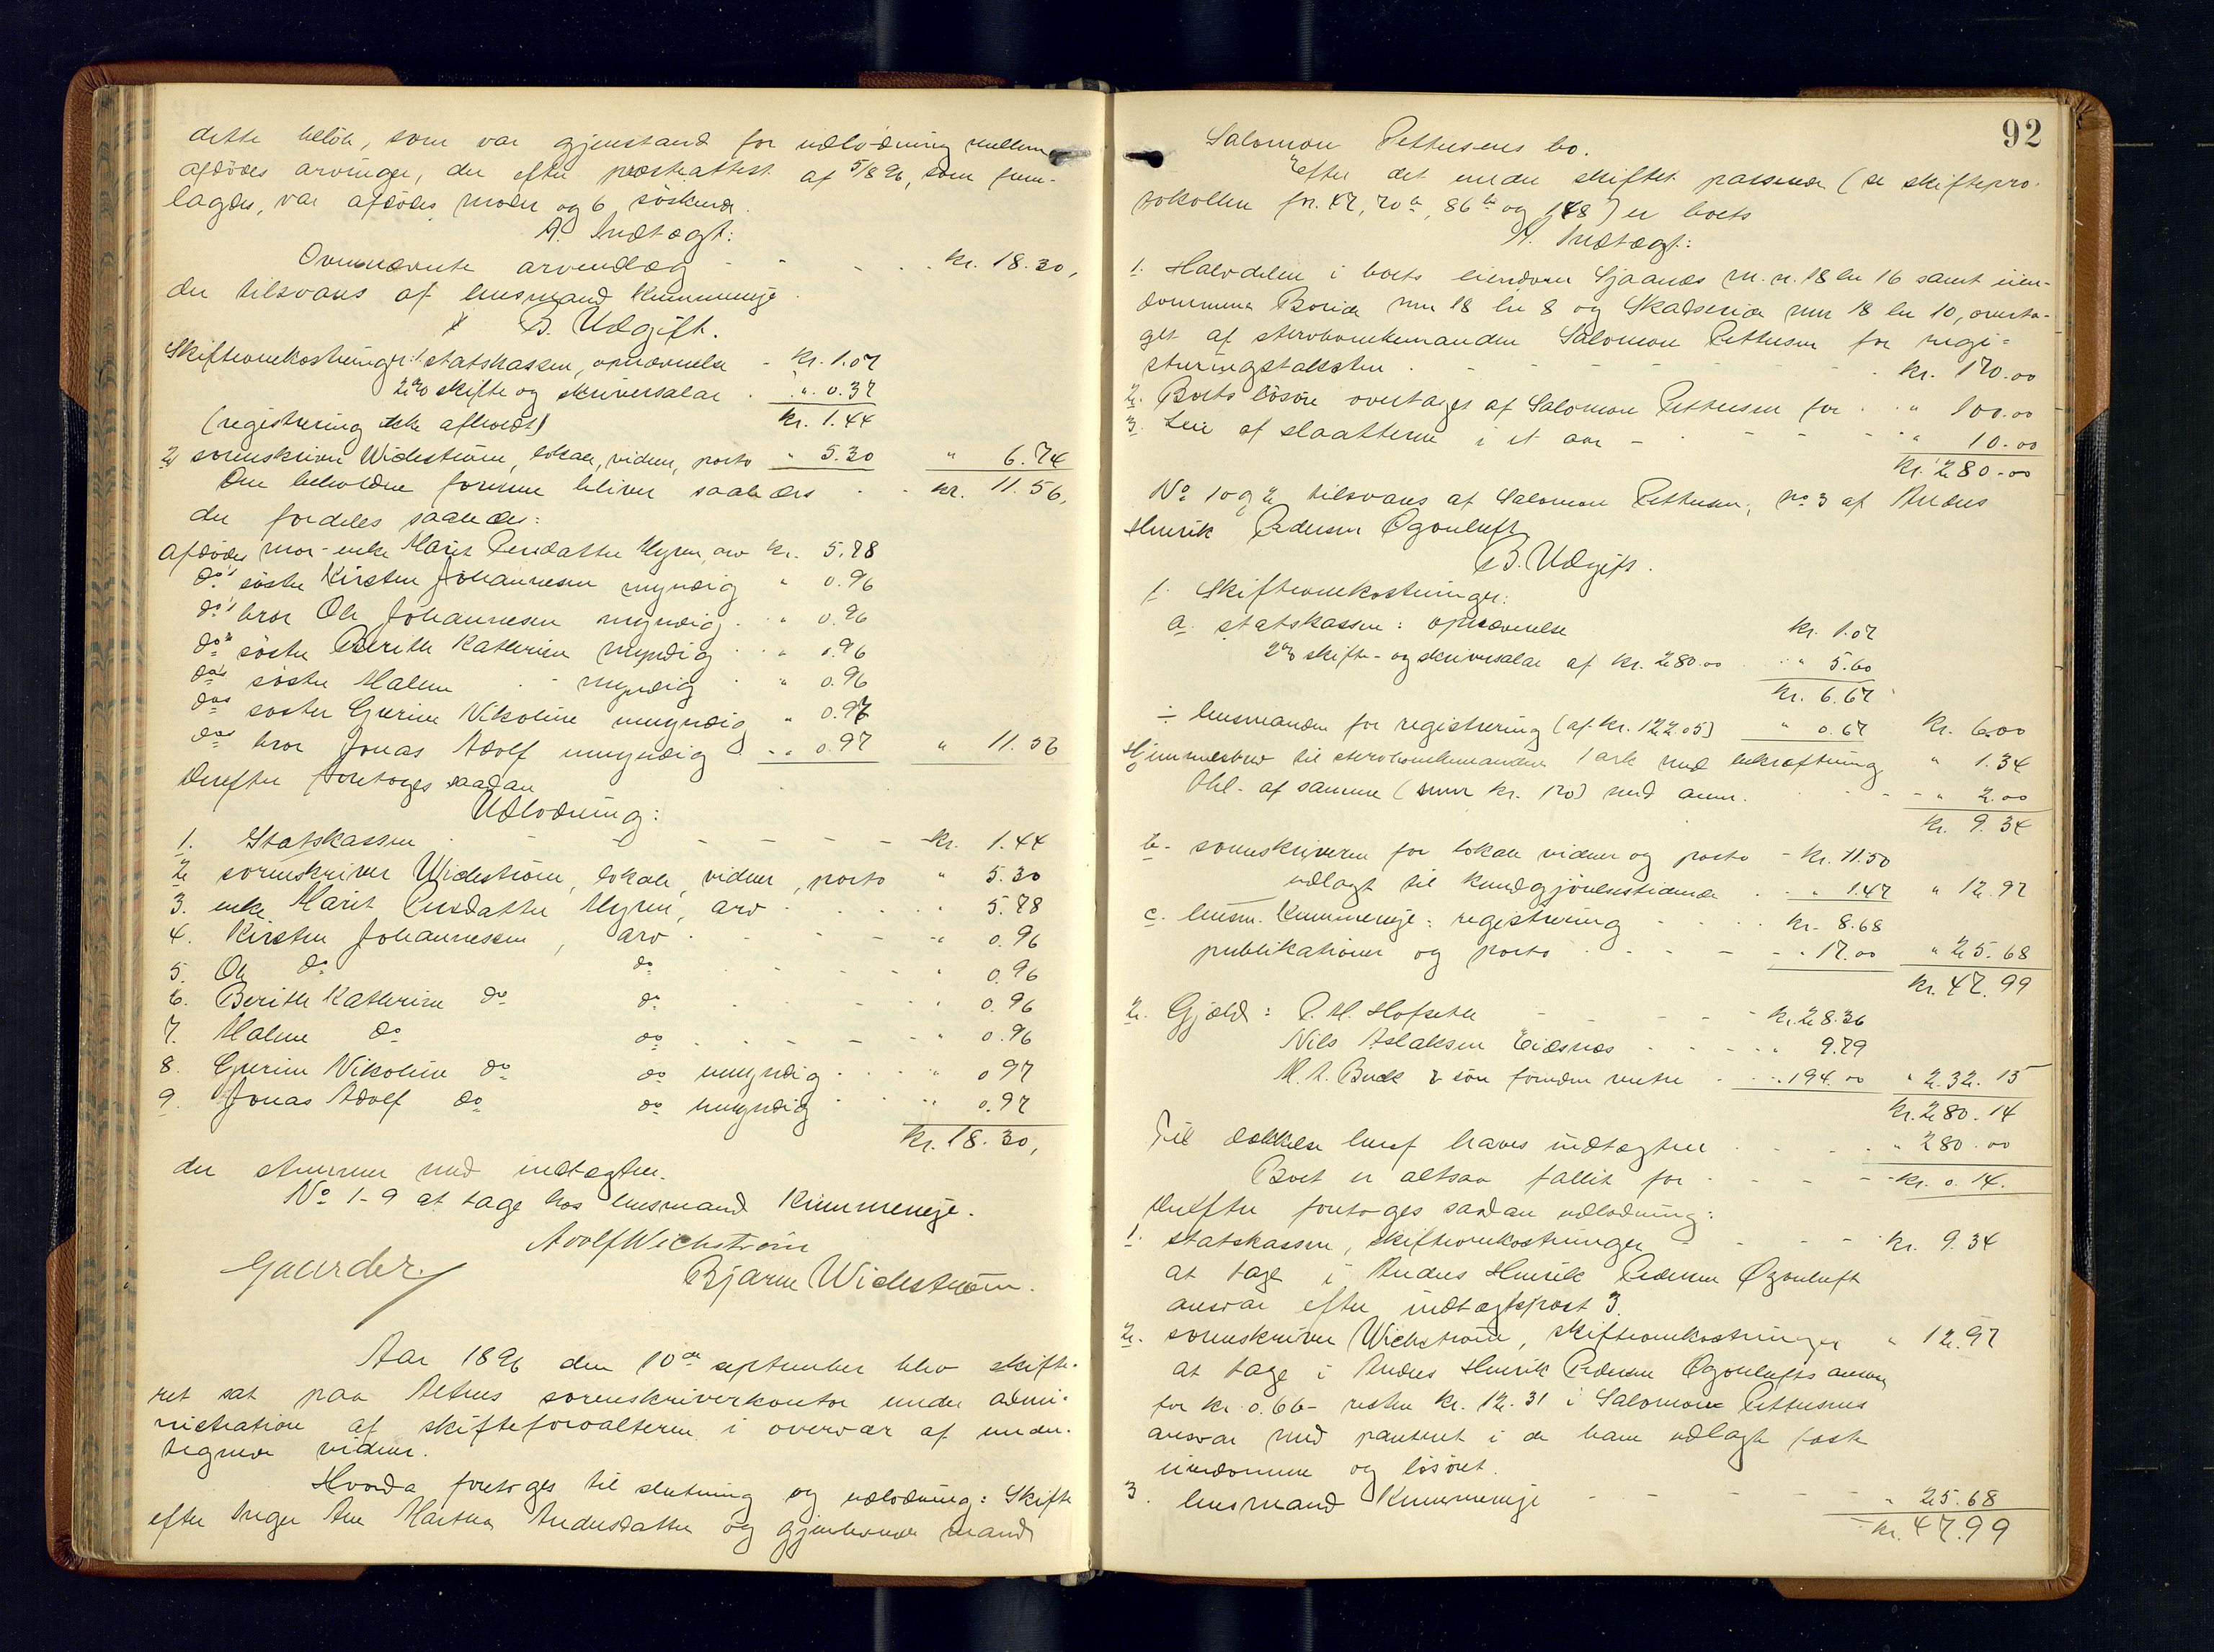 dette beløb, som var gjenstand for udlodning mellem
afdødes arvinger, der efter prosteattest af 5/8 96, som frem-
lagdes, var afdødes moder og 6 søskende.
A. Indtægt:
Ovennævnte arvendlæg - - - - kr. 18.30,
der tilsvares af lensmand Kummeneje.
B. Udgift.
Skifteomkostninger: 1 statskassen, opnævnelse - kr. 1.07
2% skifte og skriversalær . " 0.37
(registrering ikke afholdt) kr. 1.44
2 sorenskriver Wichstrøm, lokale, vidner, porto " 5.30 " 6.74
Den beholdne formue bliver saaledes . . kr. 11.56,
der fordeles saaledes:
Afdødes mor - enke Marit Persdatter Myren, arv kr. 5.78
do's søster Kirsten Johannesen myndig " 0.96
do's bror Ole Johannesen myndig . . " 0.96
do's søster Berith Kathrine myndig . . " 0.96
do's søster Malene . - myndig . " 0.96
do's søster Gurine Nikoline umyndig " 0.97
do's bror Jonas Adolf umyndig - . " 0.97 " 11.56
Derefter foretoges saadan
Udlodning:
1. Statskassen - - - - - kr. 1.44
2 sorenskriver Wichstrøm, lokale, vidner, porto " 5.30
3. enke Marit Persdatter Myren, arv . . . . " 5.78
4. Kirsten Johannesen, arv . - - - " 0.96
5. Ole do do . . - - - " 0.96
6. Berith Kathrine do do . . . . " 0.96
7. Malene do do . . - - - " 0.96
8. Gurine Nikoline do do umyndig . . . " 0 97
9. Jonas Adolf do do umyndig . . " 0.97
Kr. 18.30,
der stemmer med indtægten.
No 1-9 at tage hos lensmand Kummeneje.
Adolf Wichstrøm
Gaarder. Bjarne Wichstrøm.
Aar 1896 den 10de september blev skifte-
ret sat paa Altens sorenskriverkontor under admi-
nistration af skifteforvalteren i overvær af under-
tegnede vidner.
Hvorda foretoges til slutning og udlodning: Skifte
efter Inger Ane Marthea Andersdatter og gjenlevende mand
92
Salomon Pettersens bo.
Efter det under skiftet passerede (se skiftepro-
tokollen fn. 47, 70b, 86b og 148) er boets
A. Indtægt:
1. Halvdelen i boets eiendom Sjaanes m.n. 18 ln 16 samt eien-
dommene Borida mn 18 ln 8 og Skadsenia mn 18 ln 10, overta-
get af sterbonkemanden Salomon Pettersen for regi-
streringstaksten . - - - - - - . kr. 170.00
2. Boets løsøre overtages af Salomon Pettersen for . . " 100.00
3. Leie af slaatterne i et aar - . - - - - . " 10.00
Kr. 280.00
No 1 og 2 tilsvares af Salomon Pettersen, no 3 af Anders
Henrik Pedersen Øgonluft
B. Udgift.
1. Skifteomkostninger:
a. statskassen: opnævnelse kr. 1.07
2% skifte- og skriversalær af kr. 280.00 . . " 5.60
kr. 6.67
÷ lensmanden for registrering (af kr. 122.05) " 0.67 kr. 6.00
Hjemmelsbrev til sterbonkemanden 1 ark med bekræftning " 1.34
thl. af samme (sum kr. 170) med anm. . . - - - " 2.00
kr. 9.34
b. sorenskriveren for lokale vidner og porto - kr. 11.50
udlagt til kundgjørelsestidende . . " 1.47 " 12.97
c. lensm. Kummeneje: registrering - - . kr. 8.68
publikationer og porto . . - - - . " 17.00 " 25.68
kr. 47.99
2. Gjæld: P. M. Hofseth - - - - - - kr. 28.36
Nils Aslaksen Eidsnes - - - - . " 9.79
M. A. Buck & søn foruden renter . . . 194.00 " 232.15
kr. 280.14
Til dækkelse heraf haves indtægten . - . . " 280.00
Boet er altsaa fallit for . . - - - kr. 0.14.
Derefter foretoges saadan udlodning:
1. statskassen, skifteomkostninger - - - - kr. 9.34
at tage i Anders Henrik Pedersen Øgonluft
ansvar efter indtægtspost 3.
2. sorenskriver Wichstrøm, skifteomkostninger " 12.97
at tage i Anders Henrik Pedersen Øgonlufts ansvar
for kr. 0.66 - resten kr. 12.31 i Salomon Pettersens
ansvar med panteret i de ham udlagte faste
eiendomme og løsøret.
3. lensmand Kummeneje - - - - - - " 25.68
kr. 47.99